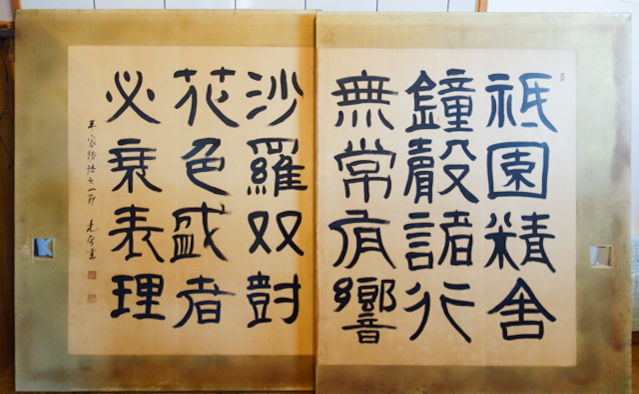 祇園精舍
鐘殸諸行
無常有響
沙羅双對
花色盛者
必衰表理
平家物語の一節